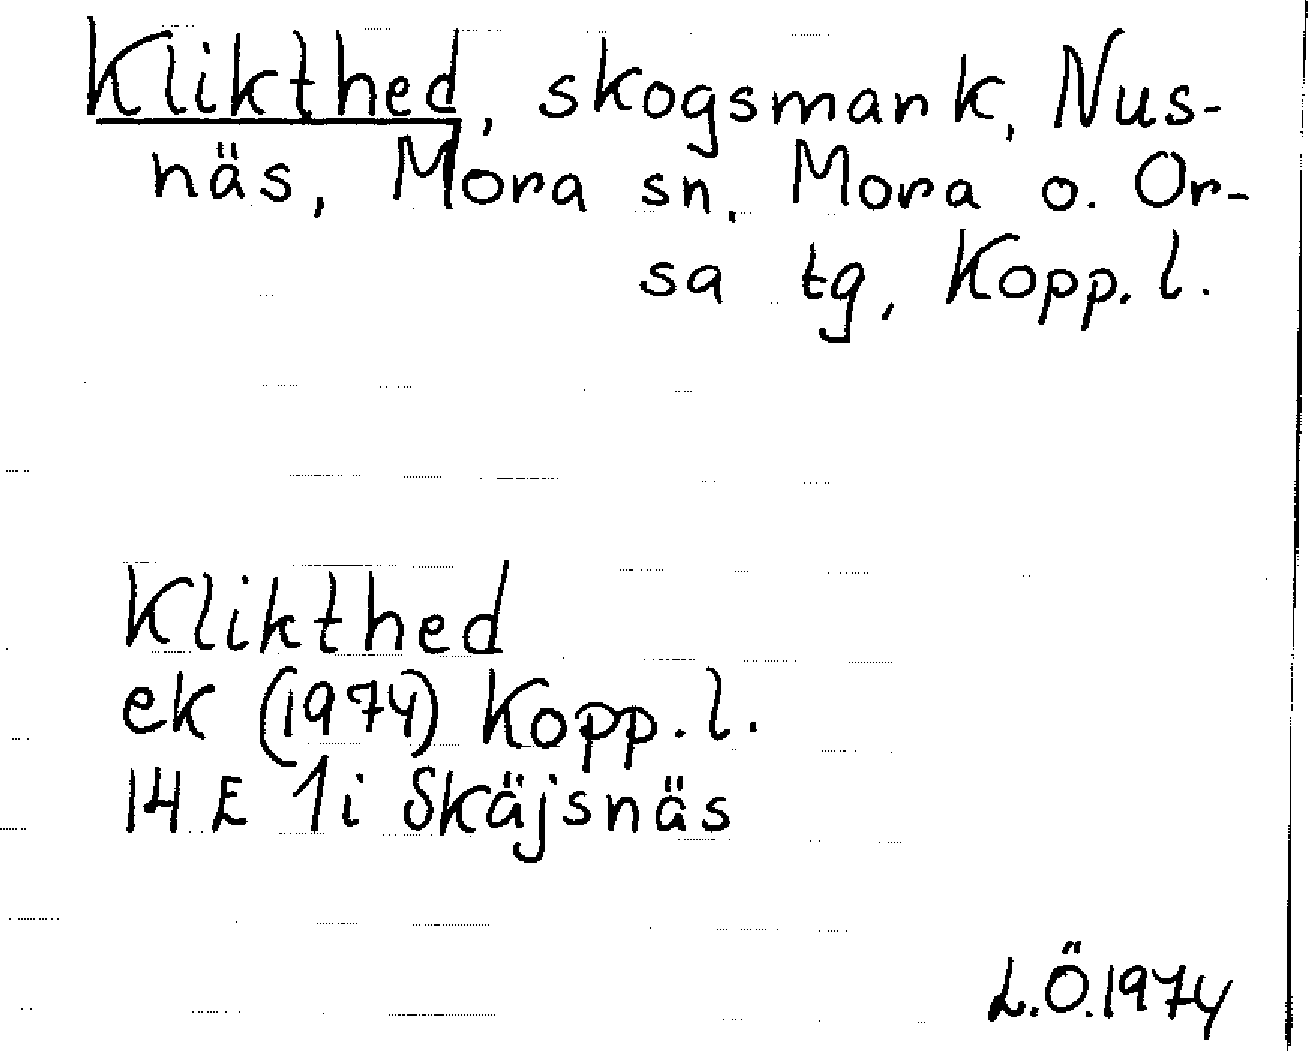 Klikthed, skogsmark, Nus-
näs, Mora sn, Mora o. Or-
sa tg, Kopp. l.
Klikthed
ek (1974) Kopp. l.
14 E 1i Skäjsnäs
L.Ö.1974